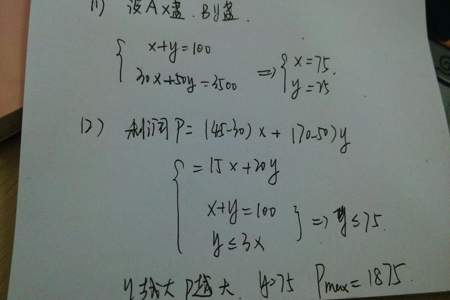 (1) 设A x盏. B y盏.
x+y=100
30x+50y=3500 => { x=75. y=25
(2) 利润P=(45-30)x+(70-50)y
=15x+20y
x+y=100
y≤3x } => y≤75.
y越大 P越大. y=75 Pmax=1875.